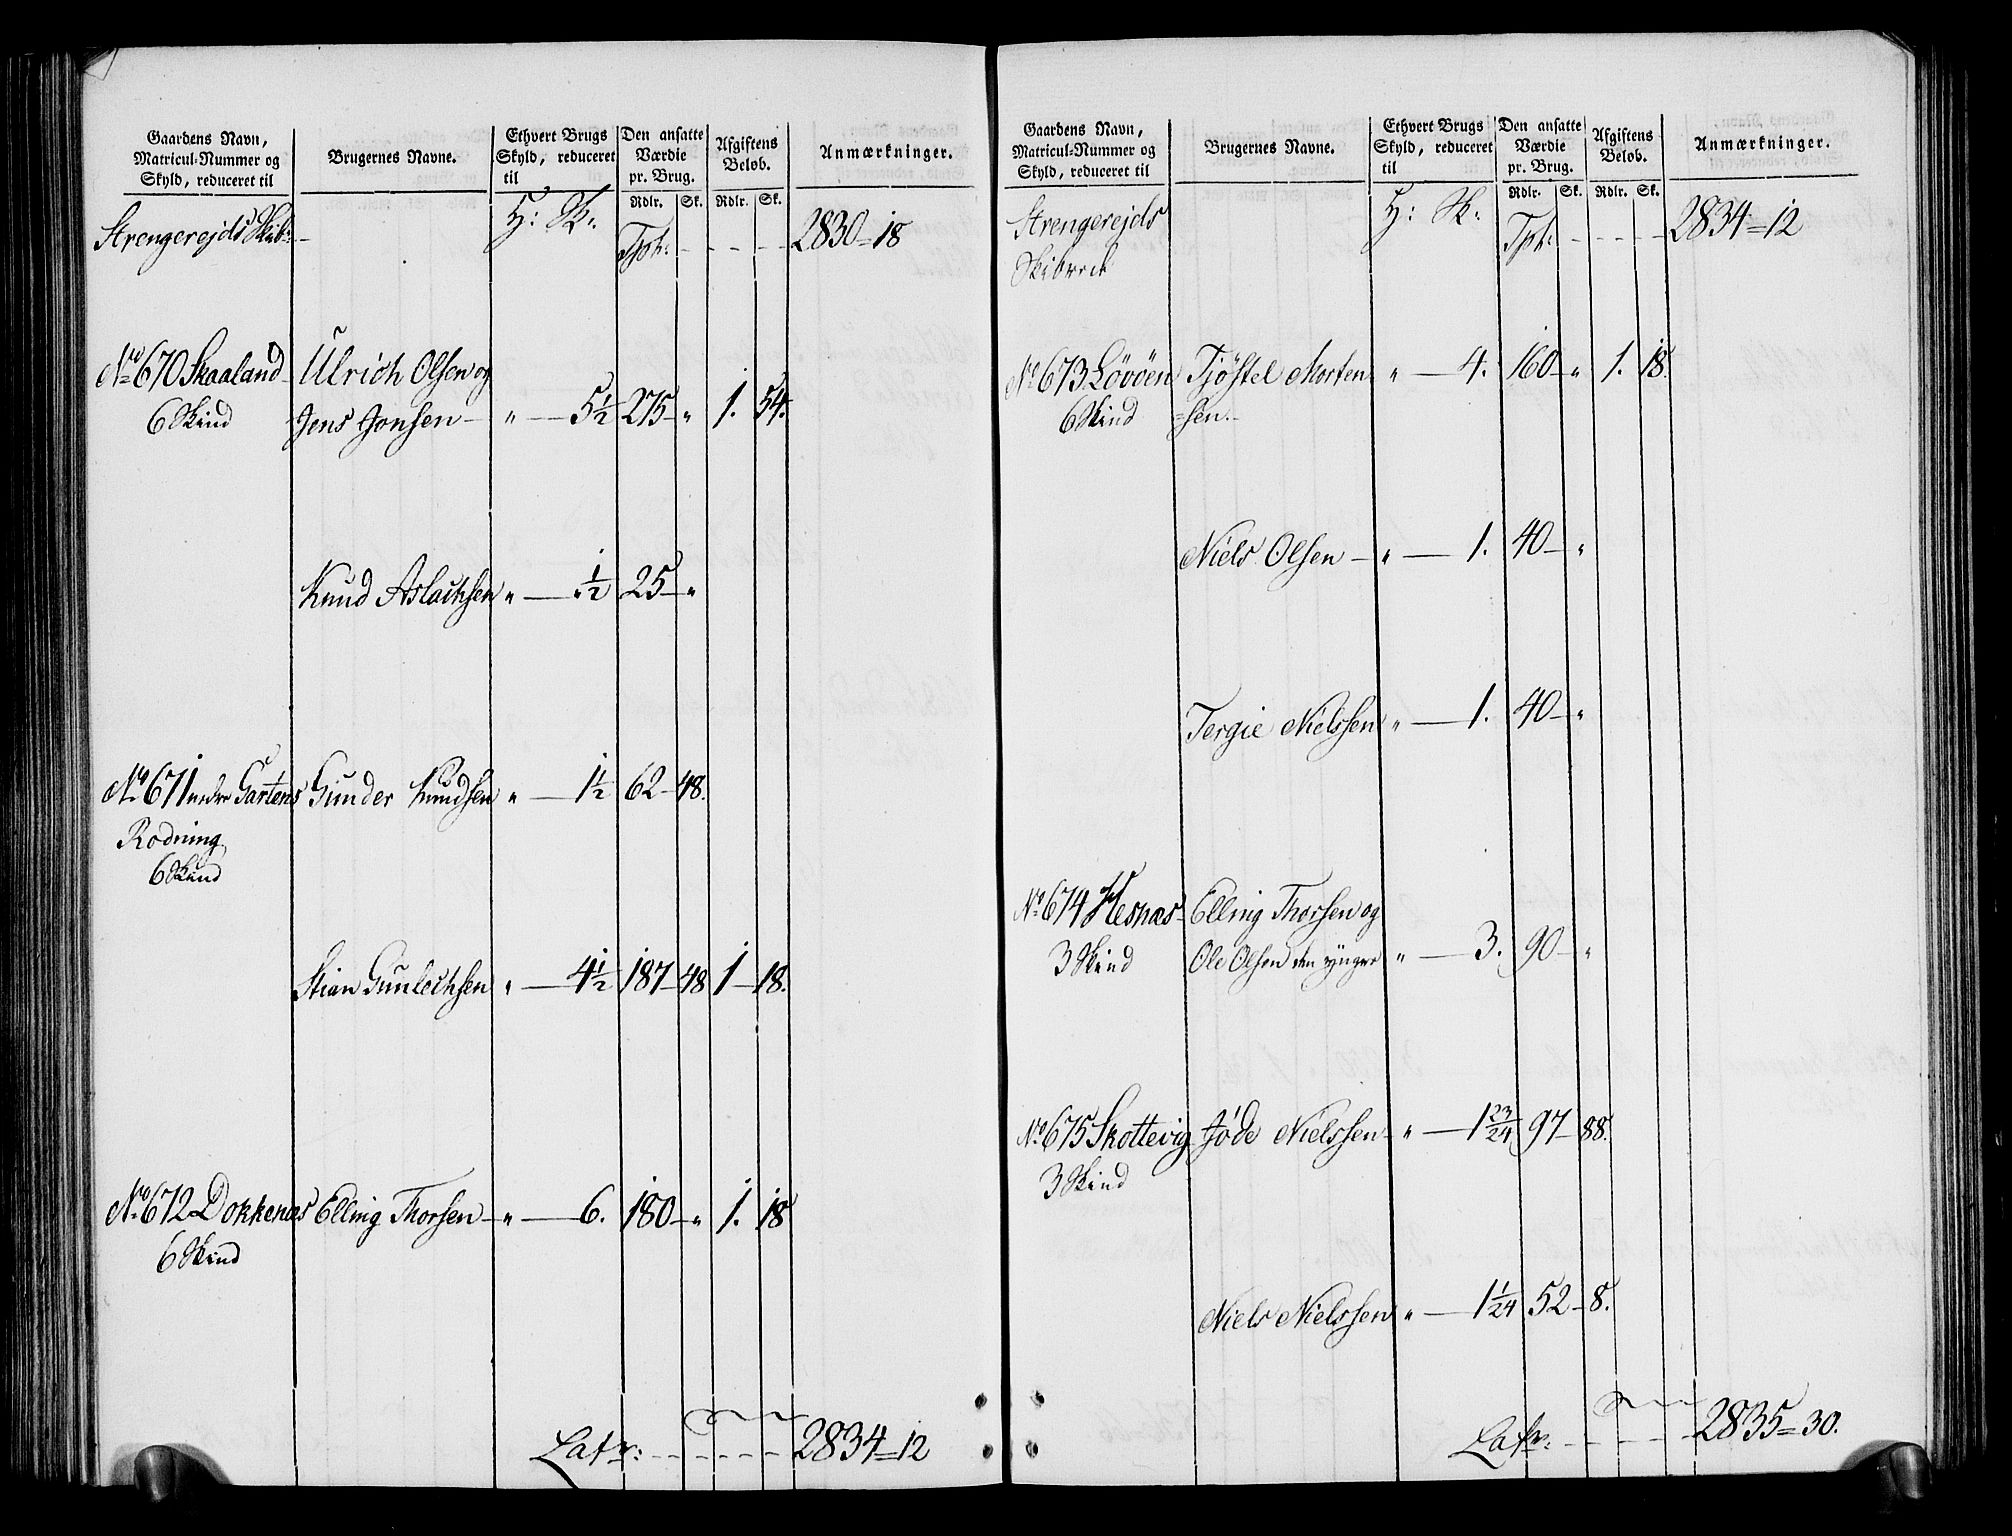 Gaardens Navn, Matricul-Nummer og Skyld, reduceret til | Brugernes Navne. | Ethvert Brugs Skyld, reduceret til | Den ansatte Værdie pr. Brug. | Afgiftens Beløb. | Anmærkninger.
H: Sk: | Rdlr. | Sk. | Rdlr. | Sk.
Strengerejds Skibr: – Tpt: - - - - 2830 = 18
No 670 Skaaland Ulrich Olsen og
6 Skind Jens Jonsen – „ – 5½ 275 – „ 1. 54.
Knud Aslachsen „ – „½ 25 – „
No 671 nedre Gartens Gunder Knudsen „ – 1½ 62 – 48.
Rødning
6 Skind
Stian Gunlechsen „ – 4½ 187 – 48 1 – 18.
No 672 Dokkenæs Elling Thorsen – „ – 6. 180 – „ 1. 18
6 Skind
Latr: - - - - - 2834 = 12
Gaardens Navn, Matricul-Nummer og Skyld, reduceret til | Brugernes Navne. | Ethvert Brugs Skyld, reduceret til | Den ansatte Værdie pr. Brug. | Afgiftens Beløb. | Anmærkninger.
H: Sk: | Rdlr. | Sk. | Rdlr. | Sk.
Strengerejds Tpt: - - - - 2834 = 12
Skibred
No 673 Løvøen Tjøstel Morten „ – 4. 160 – „ 1. 18.
6 Skind =sen. –
Niels Olsen – „ – 1. 40 – „
Tergie Nielssen „ – 1. 40 – „
No 674 Hesnæs – Elling Thorsen og
3 Skind Ole Olsen den yngre „ – 3. 90 – „
No 675 Skottevig Jøde Nielssen – „ – 1 23/24 97 – 88.
3 Skind
Niels Nielssen „ – 1 1/24 52 – 8.
Latr: - - - - - 2835 = 30.